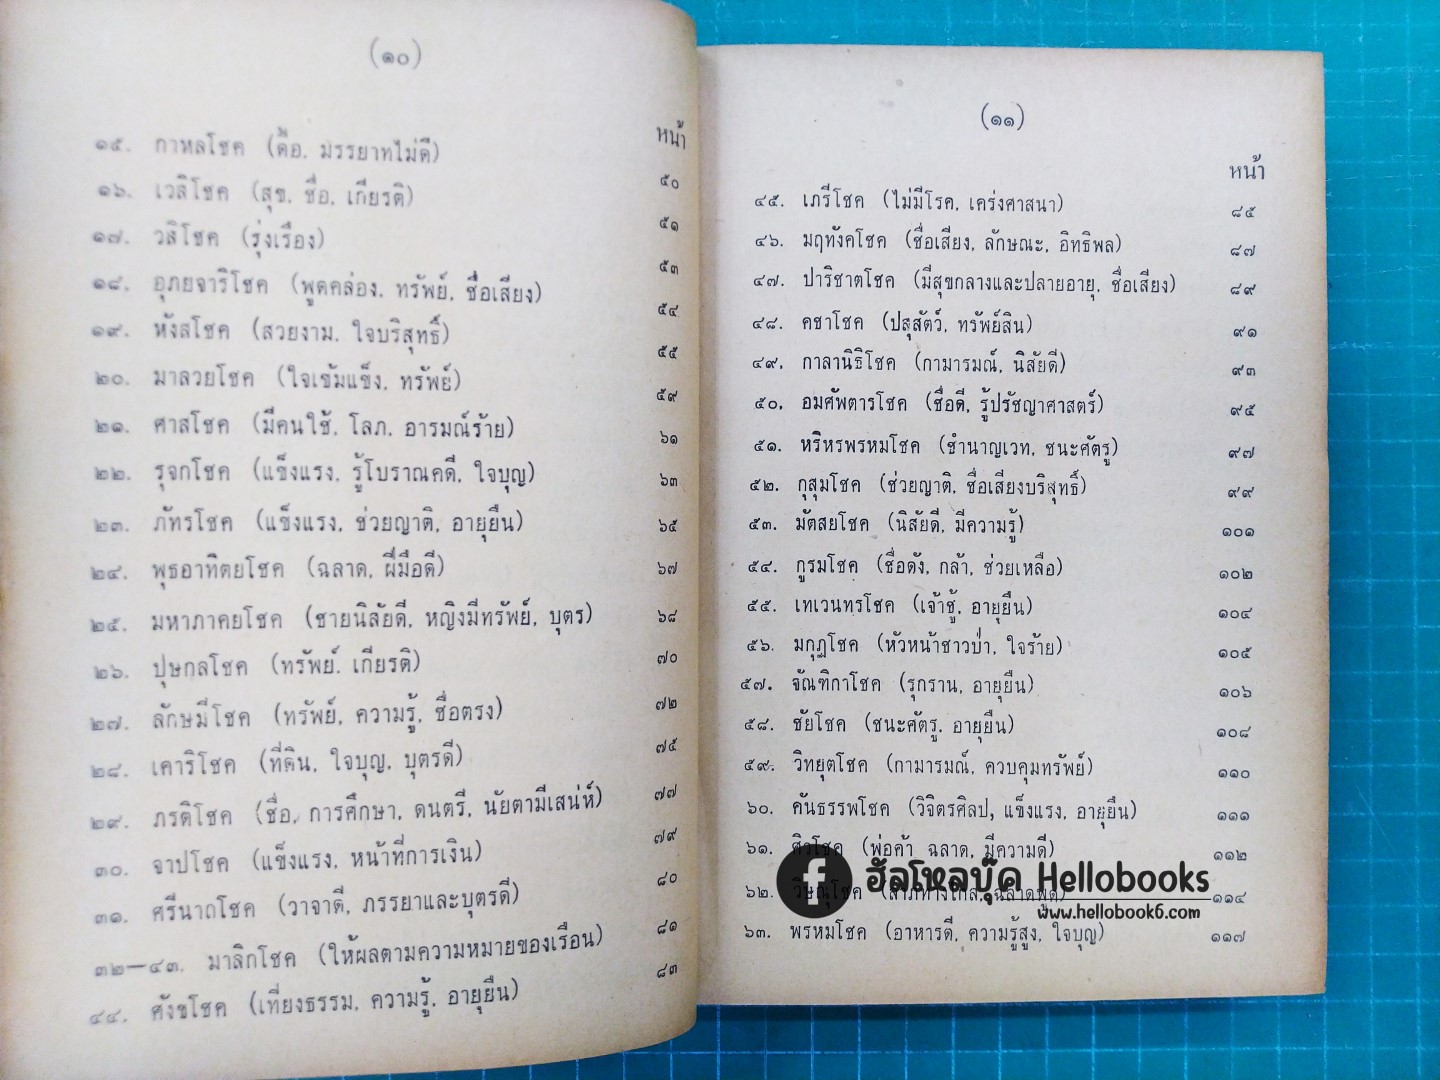 (๑๐)
หน้า
๑๕. กาหลโชค (ดื้อ, มรรยาทไม่ดี) ๕๐
๑๖. เวสิโชค (สุข, ชื่อ, เกียรติ) ๕๑
๑๗. วสิโชค (รุ่งเรือง) ๕๓
๑๘. อุภยจาริโชค (พูดคล่อง, ทรัพย์, ชื่อเสียง) ๕๔
๑๙. หังสโชค (สวยงาม, ใจบริสุทธิ์) ๕๕
๒๐. มาลวยโชค (ใจเข้มแข็ง, ทรัพย์) ๕๙
๒๑. ศาสโชค (มีคนใช้, โลภ, อารมณ์ร้าย) ๖๑
๒๒. รุจกโชค (แข็งแรง, รู้โบราณคดี, ใจบุญ) ๖๓
๒๓. ภัทรโชค (แข็งแรง, ช่วยญาติ, อายุยืน) ๖๕
๒๔. พุธอาทิตยโชค (ฉลาด, ฝีมือดี) ๖๗
๒๕. มหาภาคยโชค (ชายนิสัยดี, หญิงมีทรัพย์, บุตร) ๖๘
๒๖. ปุษกลโชค (ทรัพย์, เกียรติ) ๗๐
๒๗. ลักษมีโชค (ทรัพย์, ความรู้, ซื่อตรง) ๗๒
๒๘. เคาริโชค (ที่ดิน, ใจบุญ, บุตรดี) ๗๕
๒๙. ภรติโชค (ชื่อ, การศึกษา, ดนตรี, นัยตามีเสน่ห์) ๗๗
๓๐. จาปโชค (แข็งแรง, หน้าที่การเงิน) ๗๙
๓๑. ศรีนาถโชค (วาจาดี, ภรรยาและบุตรดี) ๘๐
๓๒–๔๓. มาลิกโชค (ให้ผลตามความหมายของเรือน) ๘๑
๔๔. ศังขโชค (เที่ยงธรรม, ความรู้, อายุยืน) ๘๓
(๑๑)
หน้า
๔๕. เภรีโชค (ไม่มีโรค, เคร่งศาสนา) ๘๕
๔๖. มฤทังคโชค (ชื่อเสียง, ลักษณะ, อิทธิพล) ๘๗
๔๗. ปาริชาตโชค (มีสุขกลางและปลายอายุ, ชื่อเสียง) ๘๙
๔๘. คชาโชค (ปสุสัตว์, ทรัพย์สิน) ๙๑
๔๙. กาลานิธิโชค (กามารมณ์, นิสัยดี) ๙๓
๕๐. อมศัพตารโชค (ชื่อดี, รู้ปรัชญาศาสตร์) ๙๕
๕๑. หริหรพรหมโชค (ชำนาญเวท, ชนะศัตรู) ๙๗
๕๒. กุสุมโชค (ช่วยญาติ, ชื่อเสียงบริสุทธิ์) ๙๙
๕๓. มัตสยโชค (นิสัยดี, มีความรู้) ๑๐๑
๕๔. กูรมโชค (ชื่อดัง, กล้า, ช่วยเหลือ) ๑๐๒
๕๕. เทเวนทรโชค (เจ้าชู้, อายุยืน) ๑๐๔
๕๖. มกุฏโชค (หัวหน้าชาวป่า, ใจร้าย) ๑๐๕
๕๗. จัณฑิกาโชค (รุกราน, อายุยืน) ๑๐๖
๕๘. ชัยโชค (ชนะศัตรู, อายุยืน) ๑๐๘
๕๙. วิทยุตโชค (กามารมณ์, ควบคุมทรัพย์) ๑๑๐
๖๐. คันธรรพโชค (วิจิตรศิลป, แข็งแรง, อายุยืน) ๑๑๑
๖๑. ศิวโชค (พ่อค้า ฉลาด, มีความดี) ๑๑๒
๖๒. วิษณุโชค ๑๑๔
๖๓. พรหมโชค (อาหารดี, ความรู้สูง, ใจบุญ) ๑๑๗
ฮัลโหลบุ๊ค Hellobooks
www.hellobook6.com